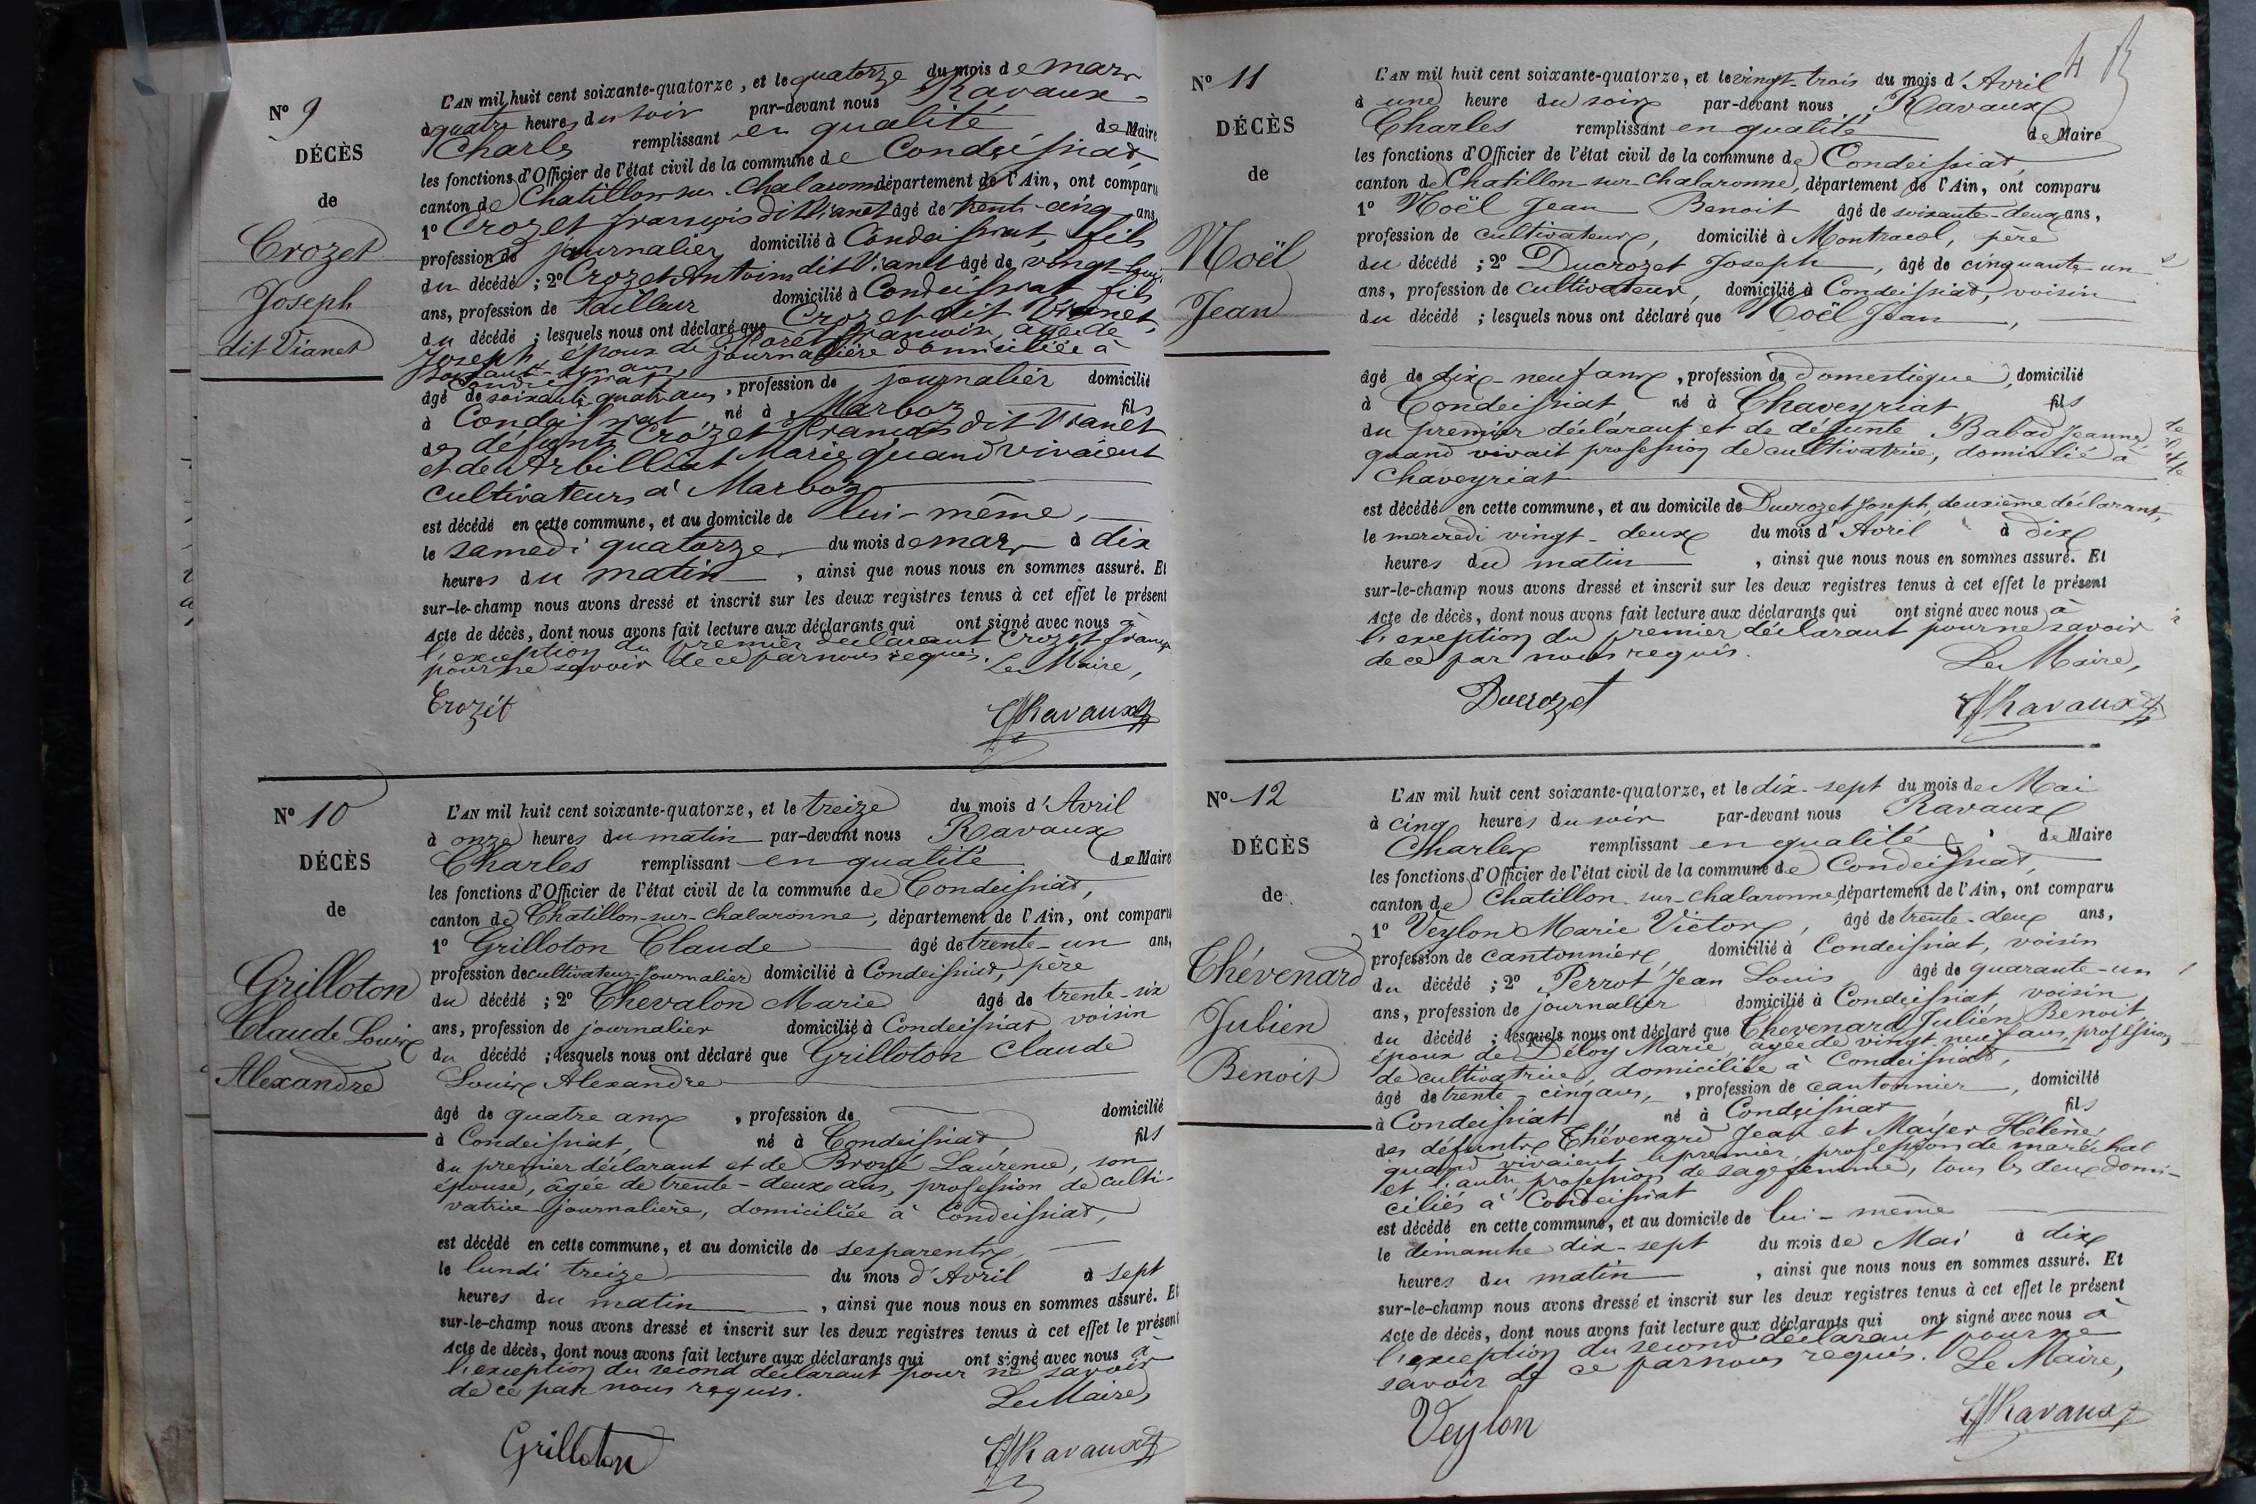 N° 9
DÉCÈS
de
Crozet
Joseph
dit Vianet
L'AN mil huit cent soixante-quatorze, et le quatorze du mois de mars
à quatre heures du soir par-devant nous Ravaux
Charles remplissant en qualité de Maire
les fonctions d'Officier de l'état civil de la commune de Condeissiat,
canton de Chatillon sur Chalaronne département de l'Ain, ont comparu
1° Crozet françois dit Vianet âgé de trente-cinq ans,
profession de journalier domicilié à Condeissiat, fils
du décédé ; 2° Crozet Antoine dit Vianet âgé de vingt-huit
ans, profession de tailleur domicilié à Condeissiat fils
du décédé ; lesquels nous ont déclaré que Crozet dit Vianet,
Joseph, époux de Moret françoise, agée de
soixante-un ans, journalière domiciliée à
Condeissiat
âgé de soixante quatre ans, profession de journalier domicilié
à Condeissiat, né à Marboz fils
des défunts Crozet françois dit Vianet
et de Arbillat Marie quand vivaient
cultivateurs à Marboz
est décédé en cette commune, et au domicile de lui-même,
le samedi quatorze du mois de mars à dix
heures du matin, ainsi que nous nous en sommes assuré. Et
sur-le-champ nous avons dressé et inscrit sur les deux registres tenus à cet effet le présent
Acte de décès, dont nous avons fait lecture aux déclarants qui ont signé avec nous à
l'exception du premier déclarant Crozet françois
pour ne savoir de ce par nous requis. Le Maire,
Crozet ChRavaux
N° 10
DÉCÈS
de
Grilloton
Claude Louis
Alexandre
L'AN mil huit cent soixante-quatorze, et le treize du mois d'Avril
à onze heures du matin par-devant nous Ravaux
Charles remplissant en qualité de Maire
les fonctions d'Officier de l'état civil de la commune de Condeissiat,
canton de Chatillon-sur-Chalaronne, département de l'Ain, ont comparu
1° Grilloton Claude âgé de trente-un ans,
profession de cultivateur-journalier domicilié à Condeissiat, père
du décédé ; 2° Chevalon Marie âgé de trente-six
ans, profession de journalier domicilié à Condeissiat, voisin
du décédé ; lesquels nous ont déclaré que Grilloton Claude
Louis Alexandre
âgé de quatre ans, profession de domicilié
à Condeissiat, né à Condeissiat fils
du premier déclarant et de Broyé Laurence, son
épouse, âgée de trente-deux ans, profession de culti-
vatrice journalière, domiciliée à Condeissiat,
est décédé en cette commune, et au domicile de ses parents,
le lundi treize du mois d'Avril à sept
heures du matin, ainsi que nous nous en sommes assuré. Et
sur-le-champ nous avons dressé et inscrit sur les deux registres tenus à cet effet le présent
Acte de décès, dont nous avons fait lecture aux déclarants qui ont signé avec nous à
l'exception du second déclarant pour ne savoir
de ce par nous requis. Le Maire,
Grilloton ChRavaux
4
N° 11
DÉCÈS
de
Noël
Jean
L'AN mil huit cent soixante-quatorze, et le vingt-trois du mois d'Avril
à une heure du soir par-devant nous Ravaux
Charles remplissant en qualité de Maire
les fonctions d'Officier de l'état civil de la commune de Condeissiat,
canton de Chatillon-sur-Chalaronne, département de l'Ain, ont comparu
1° Noël Jean Benoit âgé de soixante-deux ans,
profession de cultivateur, domicilié à Montracol, père
du décédé ; 2° Ducrozet Joseph, âgé de cinquante-un
ans, profession de cultivateur, domicilié à Condeissiat, voisin
du décédé ; lesquels nous ont déclaré que Noël Jean,
âgé de dix-neuf ans, profession de domestique, domicilié
à Condeissiat, né à Chaveyriat, fils
du premier déclarant et de défunte Babad Jeanne,
quand vivait profession de cultivatrice, domicilié à
Chaveyriat
est décédé en cette commune, et au domicile de Ducrozet Joseph, deuxième déclarant,
le mercredi vingt-deux du mois d'Avril à dix
heures du matin, ainsi que nous nous en sommes assuré. Et
sur-le-champ nous avons dressé et inscrit sur les deux registres tenus à cet effet le présent
Acte de décès, dont nous avons fait lecture aux déclarants qui ont signé avec nous à
l'exception du premier déclarant pour ne savoir
de ce par nous requis. Le Maire,
Ducrozet ChRavaux
N° 12
DÉCÈS
de
Thévenard
Julien
Benoit
L'AN mil huit cent soixante-quatorze, et le dix-sept du mois de Mai
à cinq heures du soir par-devant nous Ravaux
Charles remplissant en qualité de Maire
les fonctions d'Officier de l'état civil de la commune de Condeissiat,
canton de Chatillon-sur-Chalaronne département de l'Ain, ont comparu
1° Veylon Marie Victor, âgé de trente-deux ans,
profession de cantonnier, domicilié à Condeissiat, voisin
du décédé ; 2° Perrot Jean Louis âgé de quarante-un
ans, profession de journalier domicilié à Condeissiat, voisin
du décédé ; lesquels nous ont déclaré que Thévenard Julien Benoit,
époux de Déloy Marie âgée de vingt-neuf ans, profession
de cultivatrice, domiciliée à Condeissiat,
âgé de trente-cinq ans, profession de cantonnier, domicilié
à Condeissiat, né à Condeissiat, fils
des défunts Thévenard Jean et Mayer Hélène,
quand vivaient le premier, profession de maréchal
et l'autre profession de sagefemme, tous les deux domi-
ciliés à Condeissiat
est décédé en cette commune, et au domicile de lui-même
le dimanche dix-sept du mois de Mai à dix
heures du matin, ainsi que nous nous en sommes assuré. Et
sur-le-champ nous avons dressé et inscrit sur les deux registres tenus à cet effet le présent
Acte de décès, dont nous avons fait lecture aux déclarants qui ont signé avec nous à
l'exception du second déclarant pour ne
savoir de ce par nous requis. Le Maire,
Veylon ChRavaux